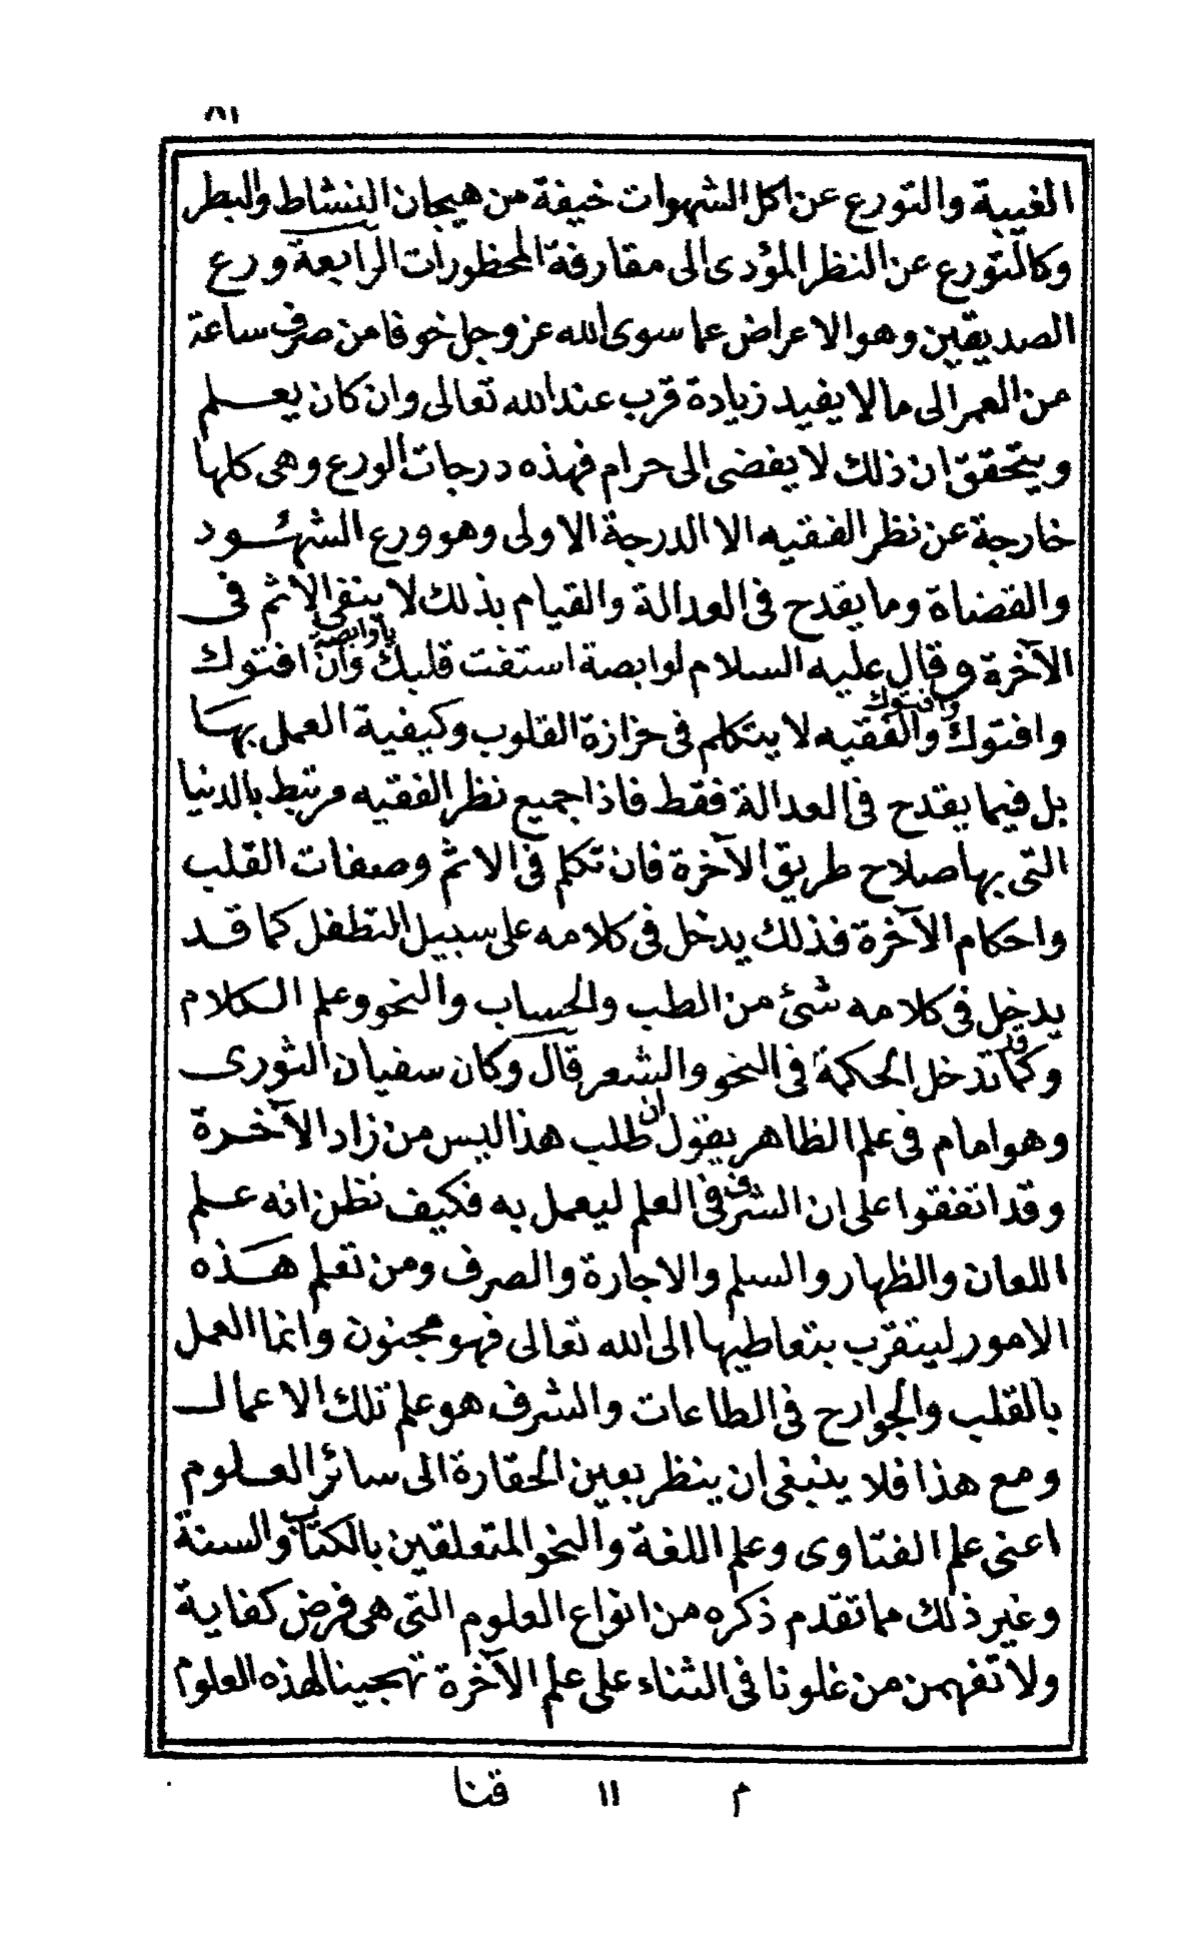 ٨١
الغيبة والتورع عن اكل الشهوات خيفة من هيجان النشاط والبطر
وكالتورع عن النظر المؤدى الى مقارفة المحظورات الرابعة ورع
الصديقين وهو الاعراض عما سوى الله عز وجل خوفا من صرف ساعة
من العمر الى ما لا يفيد زيادة قرب عند الله تعالى وان كان يعلم
ويتحقق ان ذلك لا يفضى الى حرام فهذه درجات الورع وهى كلها
خارجة عن نظر الفقيه الا الدرجة الاولى وهو ورع الشهود
والقضاة وما يقدح فى العدالة والقيام بذلك لا ينفى الاثم فى
الآخرة وقال عليه السلام لوابصة استفت قلبك يا وابصة وان افتوك
وافتوك وافتوك والفقيه لا يتكلم فى حزازة القلوب وكيفية العمل بها
بل فيما يقدح فى العدالة فقط فاذا جميع نظر الفقيه مرتبط بالدنيا
التى بها صلاح طريق الآخرة فان تكلم فى الاثم وصفات القلب
واحكام الآخرة فذلك يدخل فى كلامه على سبيل التطفل كما قد
يدخل فى كلامه شئ من الطب والحساب والنحو وعلم الكلام
وكما قد تدخل الحكمة فى النحو والشعر قال وكان سفيان الثورى
وهو امام فى علم الظاهر يقول ان طلب هذا ليس من زاد الآخرة
وقد اتفقوا على ان الشرف فى العلم ليعمل به فكيف نظن انه علم
اللعان والظهار والسلم والاجارة والصرف ومن تعلم هذه
الامور ليتقرب بتعاطيها الى الله تعالى فهو مجنون وانما العمل
بالقلب والجوارح فى الطاعات والشرف هو علم تلك الاعمال
ومع هذا فلا ينبغى ان ينظر بعين الحقارة الى سائر العلوم
اعنى علم الفتاوى وعلم اللغة والنحو المتعلقين بالكتاب والسنة
وغير ذلك مما تقدم ذكره من انواع العلوم التى هى فرض كفاية
ولا تفهمن من غلونا فى الثناء على علم الآخرة تهجينا لهذه العلوم
م ١١ قنا